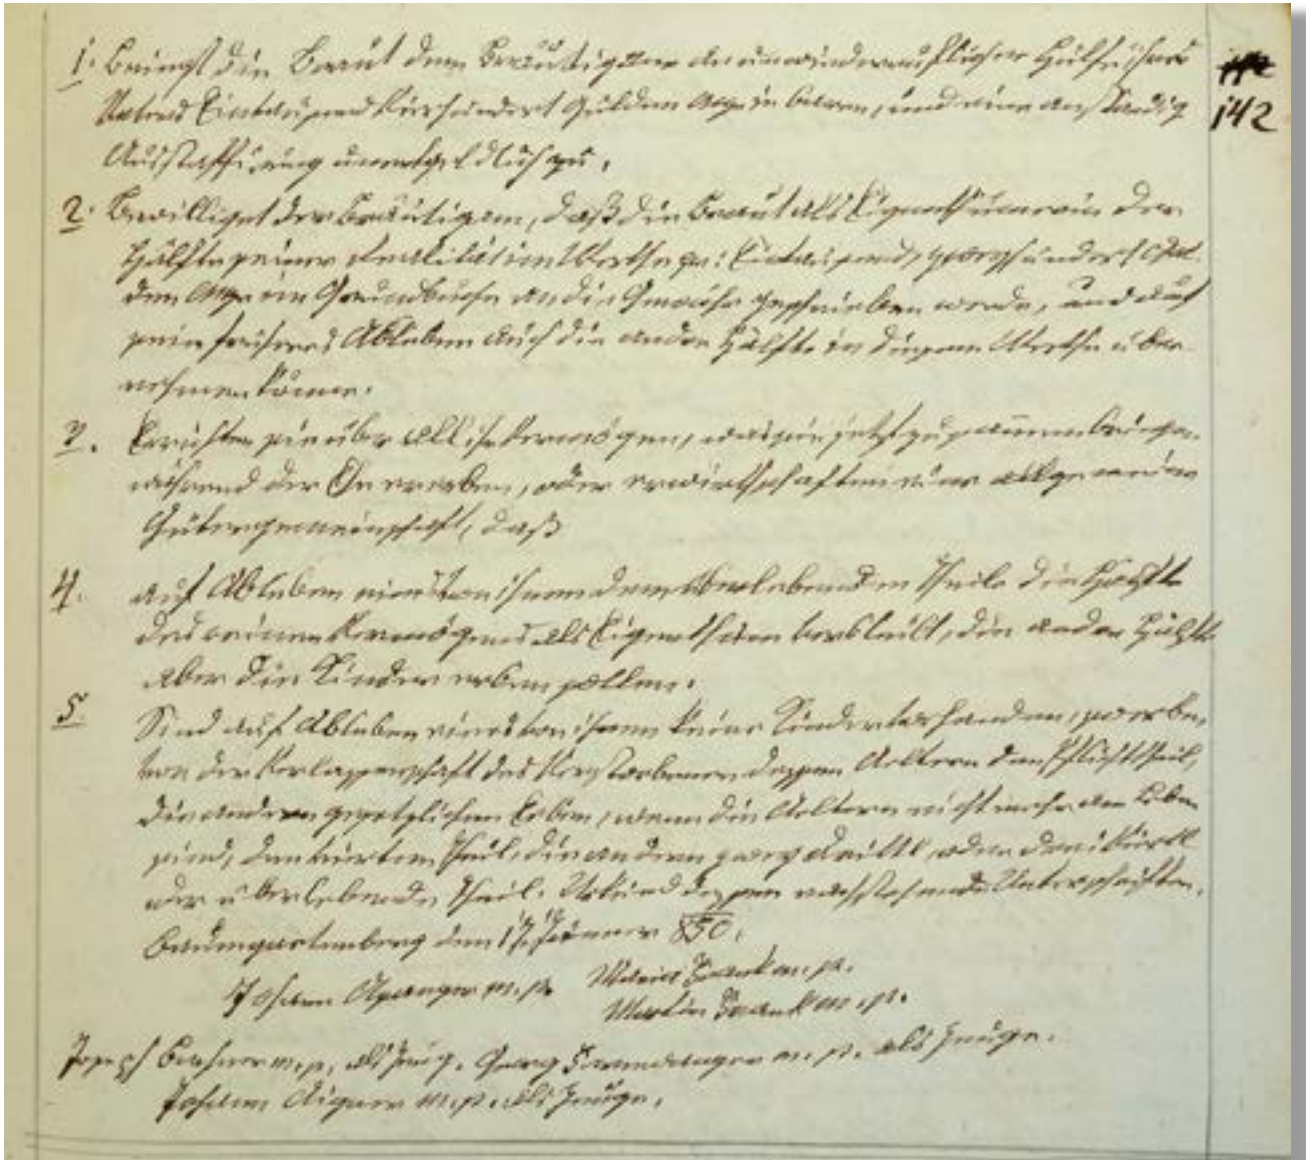 142
1. Bringt die Braut dem Bräutigam als unwiderruflicher Hülfe ihres
Vaters Eintausend Vierhundert Gulden in baren, und eine anständig
Ausstaffirung unentgeldlich zu.
2. Bewilliget der Bräutigam, daß die Braut als Eigenthümerin der
Hälfte seiner Realität im Werthe pr: Eintausend, zweyhundert Gul-
den im Grundbuche an die Gewähr geschrieben werde, und auf
sein früheres Ableben auch die andere Hälfte in diesem Werthe über-
nehmen könne.
3. Errichten sie über all ihr Vermögen, was sie jetzt zusammenbringen
während der Ehe ererben, oder erwirthschaften eine allgemeine
Gütergemeinschaft, daß
4. auf Ableben eines von ihnen dem Überlebenden Theile die Hälfte
des reinen Vermögens als Eigenthum verbleibt, die andere Hälfte
aber die Kinder erben sollen.
5 Sind auf Ableben eines von ihnen keine Kinder vorhanden, so erben
von der Verlassenschaft des Verstorbenen dessen Aeltern den Pflichttheil,
die andern gesetzlichen Erben, wenn die Aeltern nicht mehr am Leben
sind, den vierten Theil, die andern zwey drittl, oder drei viertl
der überlebende Theil. Urkund dessen nachstehende Unterschriften.
Baumgartenberg den 17. Jänner 850.
Johann m. p. Maria Frank m. p.
Martin Frank m. p.
Joseph m. p. als Zeug. Georg m. p. als Zeuge.
Johann Aigner m. p. als Zeuge.